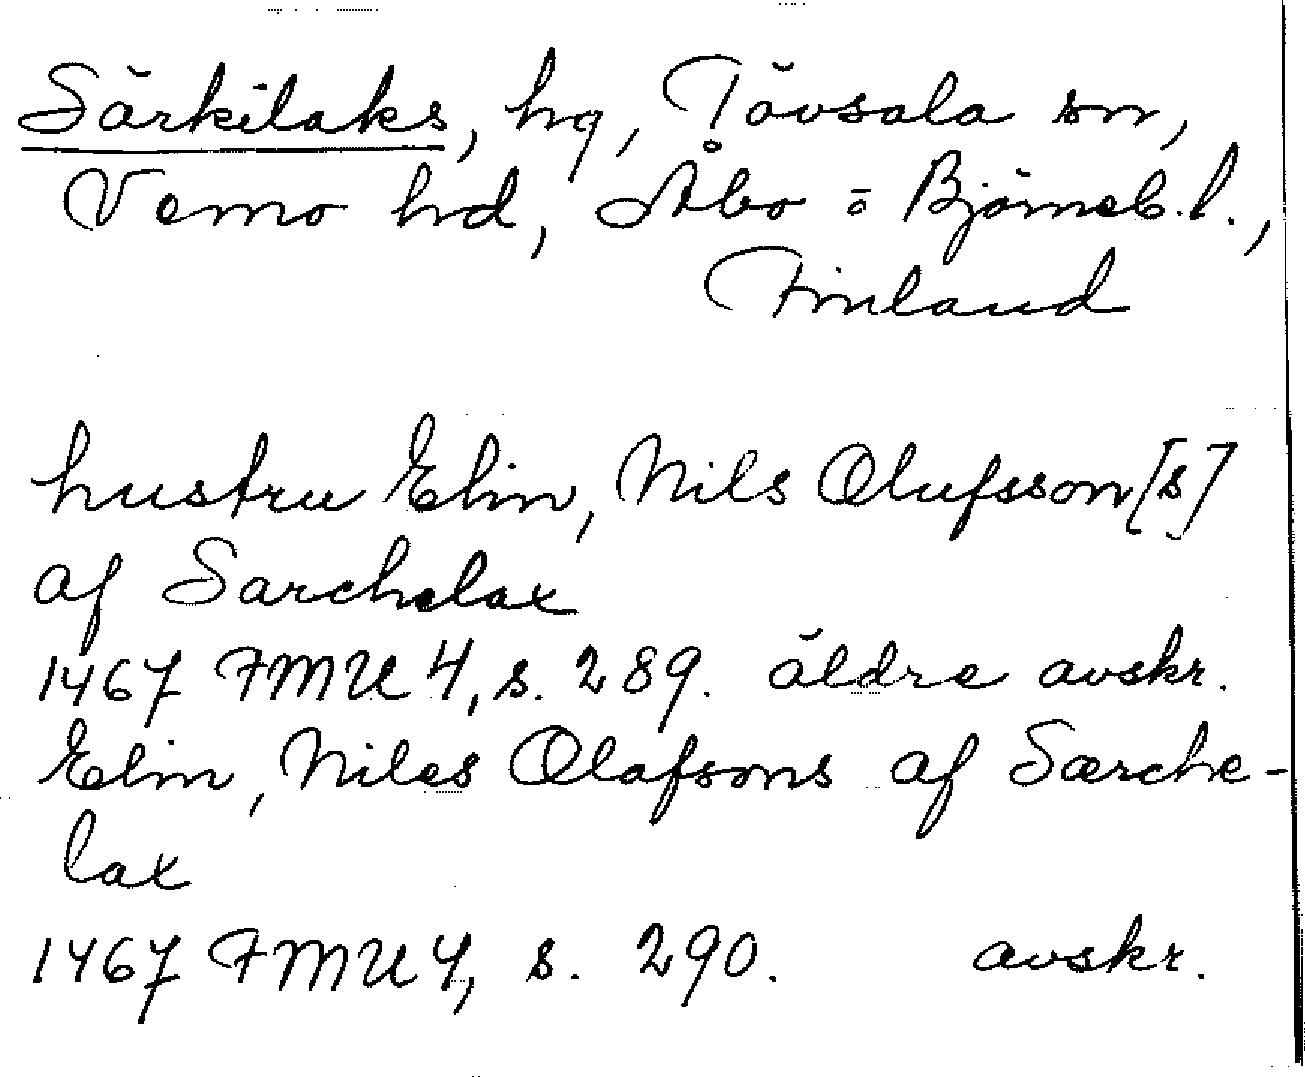 Särkilaks, hg, Tövsala sn,
Vemo hd, Åbo = Björneb. l.,
Finland
hustru Elin, Nils Olufsson[s]
af Sarchelax
1467 FMU 4, s. 289. äldre avskr.
Elin, Niles Olafsons af Særche-
lax
1467 FMU 4, s. 290. avskr.